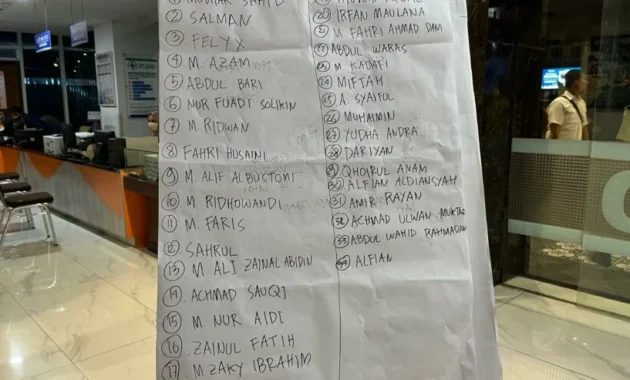 ② SALMAN
③ FELYX
④ M AZAM
⑤ ABDUL BARI
⑥ NUR FUADI SOLIKIN
⑦ M RIDWAN
⑧ FAHRI HUSAINI
⑨ M ALIF ALBUSTOMI
⑩ M RIDHOWANDI
⑪ M FARIS
⑫ SAHRUL
⑬ M ALI ZAINAL ABIDIN
⑭ ACHMAD SAUQI
⑮ M NUR AIDI
⑯ ZAINUL FATIH
⑰ M ZAKY IBRAHIM
⑳ IRFAN MAULANA
㉑ M FAHRI AHMAD DANI
㉒ ABDUL WARAS
㉓ M KADAFI
㉔ MIFTAH
㉕ A. SYAIFUL
㉖ MUHAIMIN
㉗ YUDHA ANDRA
㉘ DARIYAN
㉙ QHOIRUL ANAM
㉚ ALFIAN ALDIANSYAH
㉛ AMIR RAYAN
㉜ ACHMAD ULWAN MUKTAR
㉝ ABDUL WAHID
㉞ ALFIAN